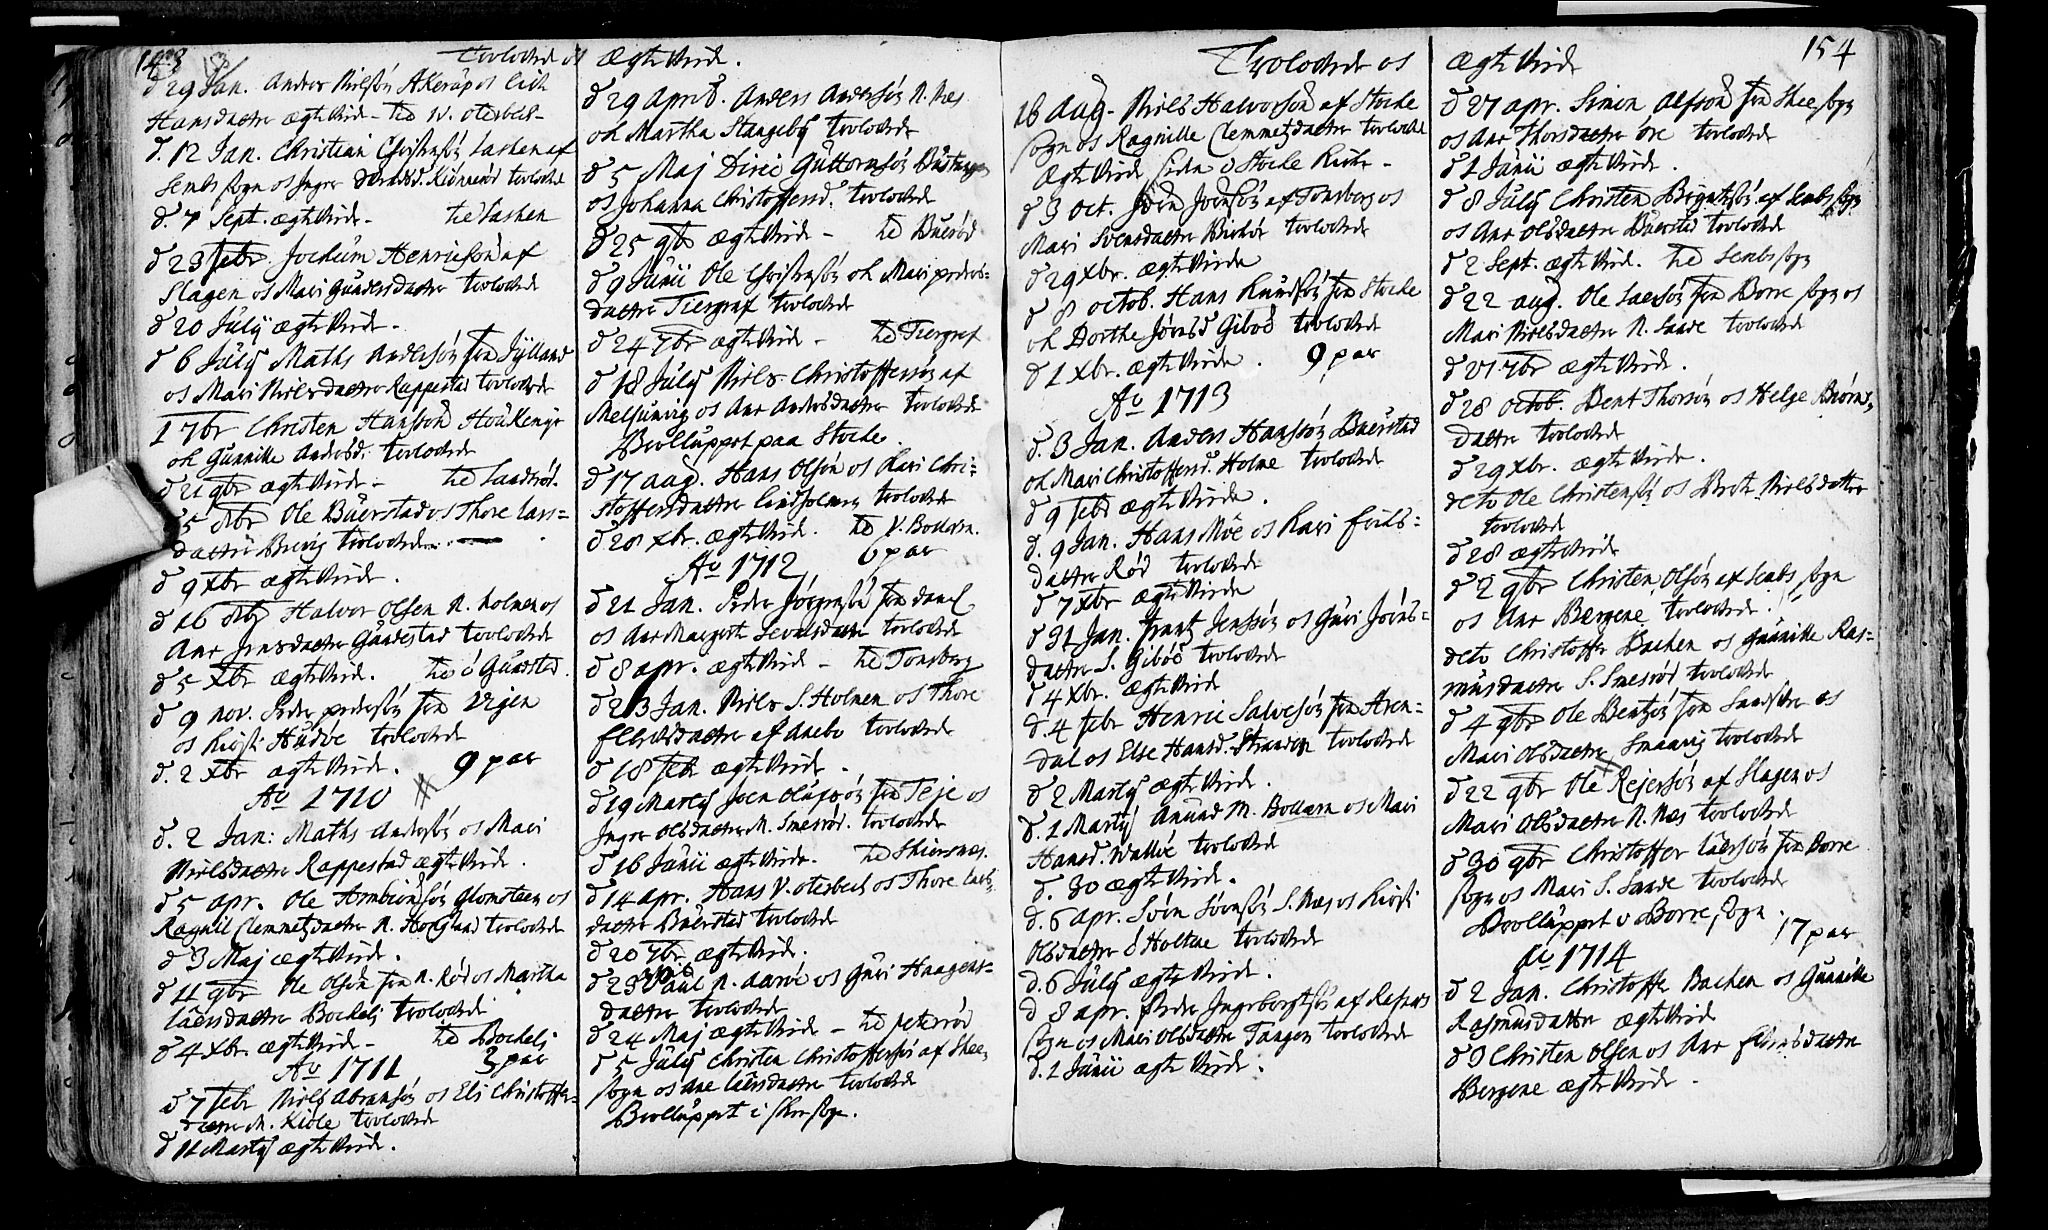 153
Trolovede og Ægte Viede.
d 29 Jan. Anders Nielsön Akerup os Lisb
Hansdatter ægte Viede - til W. oterbeck -
d. 12 Jan. Christian Christensön Basken af
Sembs sogn os Inger trolovede
d. 7 Sept. ægte Viede - til Basken
d 23 febr. Jochum Henricksön af
Slagen os Mari Gundersdatter trolovede
d 20 Julij ægte Viede -
d 6 Julij Maths Andersön fra Jylland
os Mari Nielsdatter Rappestad trolovede
1 7br Christen Hansson
ok Gunnille Andersd. trolovede
d 21 9br ægte Viede - til Sandsrød.
d 5 8br Ole Buerstad os Thore Lars=
datter Brevig trolovede
d 9 xbr ægte Viede.
d 16 8br Halvor Olsen N. Holmen os
Anr Jensdatter Gundestad trolovede
d 5 Xbr ægte Viede. til Gundestad.
d 9 nov. Peder pedersön fra
os Kirsti Hudöe trolovede
d. 2 xbr ægte Viede. 9 par
Ao 1710 #
d. 2 Jan: Maths Andersön os Mari
Nielsdatter Rappestad ægte Viede.
d 5 apr. Ole Ambiönsön Glomsteen os
Ragnil Clemmetzdatter N. Hogsland trolovede
d 3 Maj ægte Viede.
d 11 9br Ole Olsön fra N. Röd os Martha
Laersdatter Bockeli trolovede
d 4 xbr. ægte Viede - til Bockeli
Ao 1711 3 par
d 7 febr Niels Abramsön os Eli Christoffer=
datter M. Kiöle trolovede
d 11 Martij ægte Viede.
d 29 April. Anders Andersön N. Næs
ok Martha Stangebÿ trolovede
d 5 Maj Diric Guttormsön
os Johanna Christoffersd. trolovede
d 25 9br ægte Viede - til Buerød
d 9 Junii Ole Christensön ok Mari peders=
datter Tiergraf trolovede
d 24 7br ægte Viede - til Tiergraf
d 18 Julij Niels Christoffersön af
Melsumvig os Anr Andersdatter trolovede
Brolluppet paa Stocke.
d 17 aug. Hans Olsön os Kari Chri=
stoffersdatter Lindholmen trolovede
d 28 xbr. ægte Viede. til V. Bollærn.
Ao 1712 6 par
d 21 Jan. Peder Jörgensön fra
os Anr Margrete trolovede
d 8 apr. ægte Viede - til Tonsberg
d 23 Jan. Niels S. Holmen os Thore
Ellevsdatter af Anebo trolovede
d 18 febr ægte Viede -
d 19 Martij Joen Olufsön fra Teje os
Inger Olsdatter N. Smesrød. trolovede
d 16 Junii ægte Viede - til Skiersnes.
d 14 apr. Hans V. oterbeck os Thore Lars
datter Buerstad trolovede
d 20 7br ægte Viede.
d 23 Paul N. Aarøe os Guri Haagens=
datter trolovede
d 24 Maj ægte Viede - til peterød
d 5 Julij Christen Christoffersön af Skee
sogn os Ane Laersdatter trolovede
Brolluppet i Skee sogn.
154
Trolovede os Ægte Viede
16 Aug - Niels Halvorsön af Stocke
sogn os Ragnille Clemmetzdatter trolovede
Ægte Viede siden i Stocke Kirke -
d 3 Oct. Joen Joensön af Tonsberg os
Mari Svensdatter trolovede
d 29 Xbr. ægte Viede
d 8 octob. Hans Knudsön fra Stocke
ok Dorthe Jörensd Giböe trolovede
d 1 Xbr. ægte Viede. 9 par
Ao 1713
d. 3 Jan. Anders Hanssön Buerstad
ok Mari Christoffersd. Holme trolovede
d 9 febr ægte Viede.
d. 9 Jan. Hans Möe os Kari
datter Röd trolovede
d 7 xbr ægte Viede
d 31 Jan. frantz Jenssön os Guri Jörns=
datter S. Giböe trolovede
d 4 xbr. ægte Viede
d. 4 febr Henric Salvesön fra Aren=
dal os Else Hansd. Stranden trolovede
d 2 Martij ægte Viede.
d. 1 Martij Amund M. Bollærn os Mari
Hansd. Valløe trolovede
d. 30 ægte Viede.
d. 6 apr. Sören Sörensön S. Næs os Kirsti
Olsdatter Holtene trolovede
d. 6 Julij ægte Viede.
d 8 apr. Peder Ingeborgtsön af Rafnes
sogn os Mari Olsdatter Tangen trolovede
d. 1 Junii ægte Viede.
d 27 apr. Simon Olfsön fra Skee sogn
os Anr Thorsdatter öre trolovede
d 1 Junii ægte Viede.
d 8 Julij Christen Bryntsön af Sembs sogn
os Anr Olsdatter Buerstad trolovede
d 2 Sept. ægte Viede. til Sembs sogn
d 22 aug. Ole Laersön fra Borre sogn os
Mari Nielsdatter N. Sande trolovede
d 21 7br ægte Viede.
d 28 octob. Bent Thorsön os Helge Biörns=
datter trolovede
d 29 xbr. ægte Viede.
dito Ole Christensön os Nielsdatter
trolovede
d 28 ægte Viede
d 2 9br Christen Olsön af Sembs sogn
os Anr Bergene trolovede.
dito Christoffer Backen os Gunnille Ras=
musdatter S. Smesrød trolovede
d 4 9br Ole Bentzön fra Sandskee os
Mari Olsdatter Smaavig trolovede
#
d 22 9br Ole Rejersön af Slagen os
Mari Olsdatter N. Næs trolovede
d 30 9br Christoffer Laersön fra Borre
sogn os Mari S. Sande trolovede
Brolluppet i Borre sogn. 17 par
Ao 1714
d 2 Jan. Christoffer Backen os Gunnille
Rasmusdatter ægte Viede
d 9 Christen Olsen os Anr Ellevsdatter
Bergene ægte Viede.